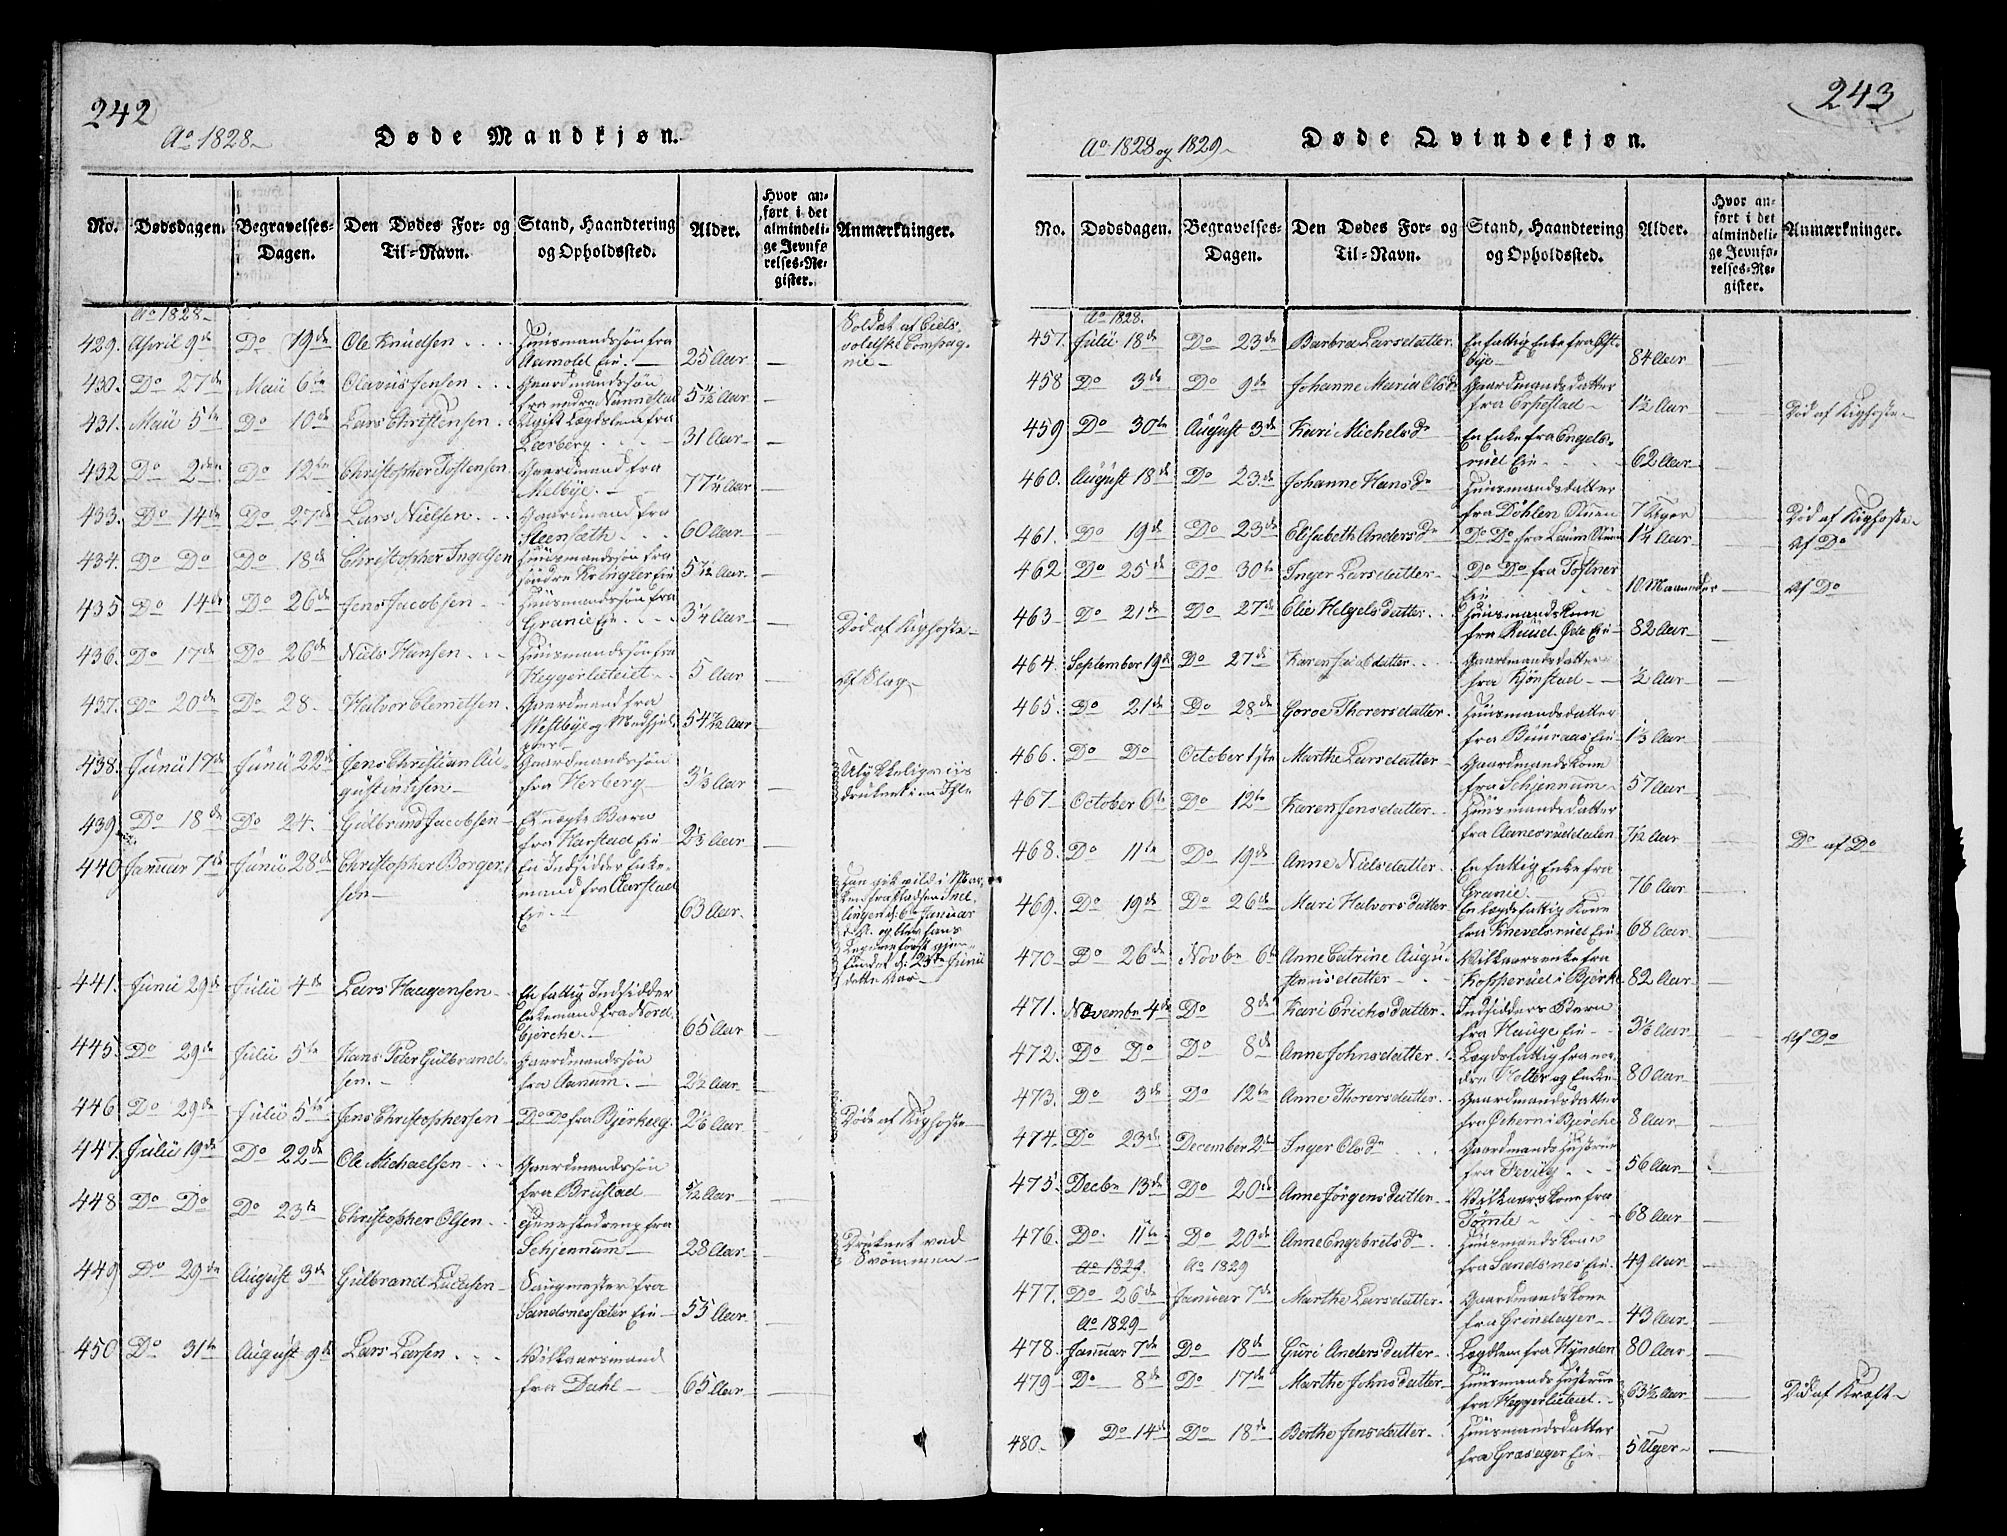 242
Ao 1828
Døde Mandkjøn.
No.
Dødsdagen.
Begravelses-Dagen.
Den Dødes For- og Til-Navn.
Stand, Haandtering og Opholdssted.
Alder.
Hvor anført i det almindelige Jevnførelses-Register.
Anmærkninger.
Ao 1828
429. April 9de Do 19de Ole Knudsen Huusmandssøn fra Aamold Eie 25 Aar Soldat af Eidsvoldske Compagnie
430. Do 27de Maii 6te Olavus Jensen Gaardmandssøn fra nedre Nannestad 5 1/2 Aar
431. Maii 5te Do 10de Lars Christensen Ugift Lægdslem fra Lærberg 31 Aar
432 Do 2den Do 12te Christopher Tostensen Gaardmand fra Melbye 77 1/4 Aar
433. Do 14de Do 27de Lars Nielsen Gaardmand fra Steensæth 60 Aar
434. Do Do Do 18de Christopher Ingelsen Huusmandssøn fra søndre Kringler Eie 5 1/12 Aar
435 Do 14de Do 26de Jens Jacobsen Huusmandssøn fra Granie Eie 3 1/4 Aar Død af Kighoste
436. Do 17de Do 26de Niels Hansen Huusmandssøn fra Heggerlieteiet 5 Aar Af Slag
437. Do 20de Do 28 Halvor Clemetsen Gaardmand fra Westbye og Medhjelper 54 1/2 Aar
438. Junii 17de Junii 22de Jens Christian Augustinusen Gaardmandssøn fra Herberg 3 1/3 Aar Ulykkeligviis druknet i en
439 Do 18de Do 24. Gulbrand Jacobsen Et uægte Barn fra Harstad Eie 2 1/3 Aar
440 Januar 7de Junii 28de Christopher Borgersen En Indsidder Enkemand fra Aarstad Eie 63 Aar Han gik vild i Marken fra Pladsen d: 6te Januar d. A. og blev hans Legeme først gjenfundet d: 23de Junii dette Aar
441. Junii 29de Julii 4de Lars Haagensen En fattig Indsidder Enkemand fra Nordbjerche 65 Aar
445. Do 29de Julii 5te Hans Peter Gulbrandsen Gaardmandssøn fra Aanum 2 1/2 Aar
446 Do 29de Julii 5te Jens Christophersen Do Do fra Bjerkeeg 2 1/6 Aar Døde af Kighoste
447. Julii 19de Do 22de Ole Michaelsen Gaardmandssøn fra Brustad 5/12 Aar
448 Do Do Do 23de Christopher Olsen Tjenestedreng fra Schjennum 28 Aar Druknet ved Svømmen
449 Do 29de August 3de Gulbrand Larsen Saugmester fra Sandsnessæter Eie 55 Aar
450 Do 31te August 9de Lars Larsen Vilkaarsmand fra Dahl 65 Aar
243
Ao 1828 og 1829
Døde Qvindekjøn.
No.
Dødsdagen.
Begravelses-Dagen.
Den Dødes For- og Til-Navn.
Stand, Haandtering og Opholdssted.
Alder.
Hvor anført i det almindelige Jevnførelses-Register.
Anmærkninger.
Ao 1828.
457. Julii 18de Do 23de Barbra Larsdatter En fattig Enke fra Østbye 84 Aar
458 Do 3de Do 9de Johanne Maria Olsdr Gaardmandsdatter fra Erpestad 1 1/2 Aar Død af Kighoste
459 Do 30te August 3de Kari Michelsdr En Enke fra Engelsrud Eie 62 Aar
460. August 18de Do 23de Johanne Hansdr Huusmandsdatter fra Døhlen 7 Uger Død af Kighoste
461. Do 19de Do 23de Elisabeth Andersdr Do Do fra 1 1/4 Aar Af Do
462 Do 25de Do 30te Inger Larsdatter Do Do fra Tostner Eie 10 Maaneder Af Do
463 Do 21de Do 27de Elie Helgelsdatter Huusmandskone fra Ruud Øde Eie 82 Aar
464. September 19de Do 27de Karen datter Gaardmandsdatter fra Kjønstad 1/2 Aar
465. Do 21de Do 28de Goroe Thorersdatter Huusmandsdatter fra Buuraas Eie 1 1/3 Aar
466. Do Do October 1ste Marthe Larsdatter Gaardmandskone fra Schjennum 57 Aar
467. October 6te Do 12te Karen Jensdatter Huusmandsdatter fra Aanesruddalen 7/12 Aar Do af Do
468. Do 11te Do 19de Anne Nielsdatter En fattig Enke fra Granie 76 Aar
469. Do 19de Do 26de Mari Halvorsdatter En lægdsfattig Kone fra Knevelsrud Eie 68 Aar
470 Do 26de Novbr 6te Anne Catrine Augustinusdatter Vilkaarsenke fra Kopperud i Bjerke 82 Aar
471. Novembr 4de Do 8de Kari Erichsdatter Indsidders Barn fra Hauge Eie 3 1/6 Aar Af Do
472. Do Do Do 8de Anne Johnsdatter Lægdsfattig fra nordre Holter og Enke 80 Aar
473. Do 3de Do 12te Anne Thorersdatter Gaardmandsdatter fra Ochern i Bjerche 8 Aar
474. Do 23de December 2de Inger Olsdr Gaardmands Hustrue fra Tveiteg 56 Aar
475. Decbr 13de Do 20de Anne Jørgensdatter Vilkaarskone fra Tømte 68 Aar
476. Do 11te Do 20de Anne Engebretsdr Huusmandskone fra Sandsnes Eie 49 Aar
Ao 1829. Ao 1829
477. Do 26de Januar 7de Marthe Larsdatter Gaardmandskone fra Grindager 43 Aar
Ao 1829
478. Januar 7de Do 18de Guri Andersdatter Lægdlem fra Hynden 80 Aar
479 Do 8de Do 17de Marthe Johnsdatter Huusmands Hustrue fra Heggerlieteiet 63 1/2 Aar Død af Kræft
480. Do 14de Do 18de Berthe Jensdatter Huusmandsdatter fra Grasager Eie 5 Uger